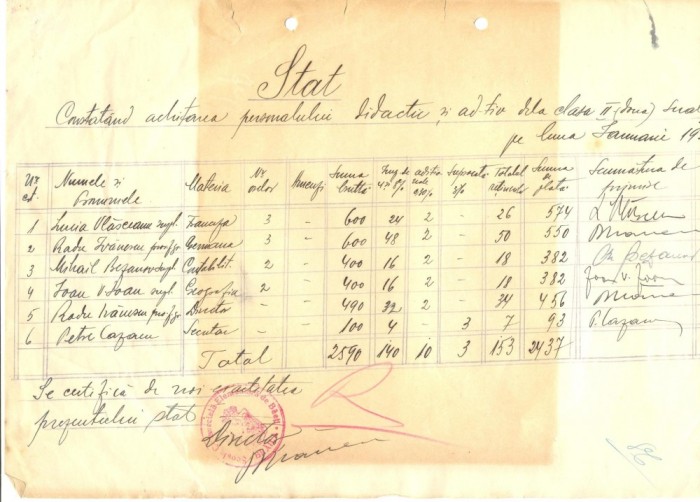 Stat
Constatând achitarea personalului didactic și ad-tiv dela clasa II (doua)
pe luna Ianuarie 19
Nr. crt. Numele și Pronumele Materia Nr. orelor Suma brută Imp. de 4 și 8% Suportă 3% Totalul reținut. Suma de plată Semnătura de primire
1 Lucia Vlăsceanu supl. Franceza 3 – 600 24 2 – 26 574
2 Radu Ivănescu prof. Germana 3 – 600 48 2 – 50 550
3 Mihail supl. Contabilit. 2 – 400 16 2 – 18 382
4 Ioan V. Ioan supl. Geografia 2 – 400 16 2 – 18 382 Ioan V. Ioan
5 Radu Ivănescu prof. Director – – 490 32 2 – 34 456
6 Petre Cazacu Secretar – – 100 4 – 3 7 93 P. Cazacu
Total 2590 140 10 3 153 2437
Se certifică de noi exactitatea
prezentului stat
Director